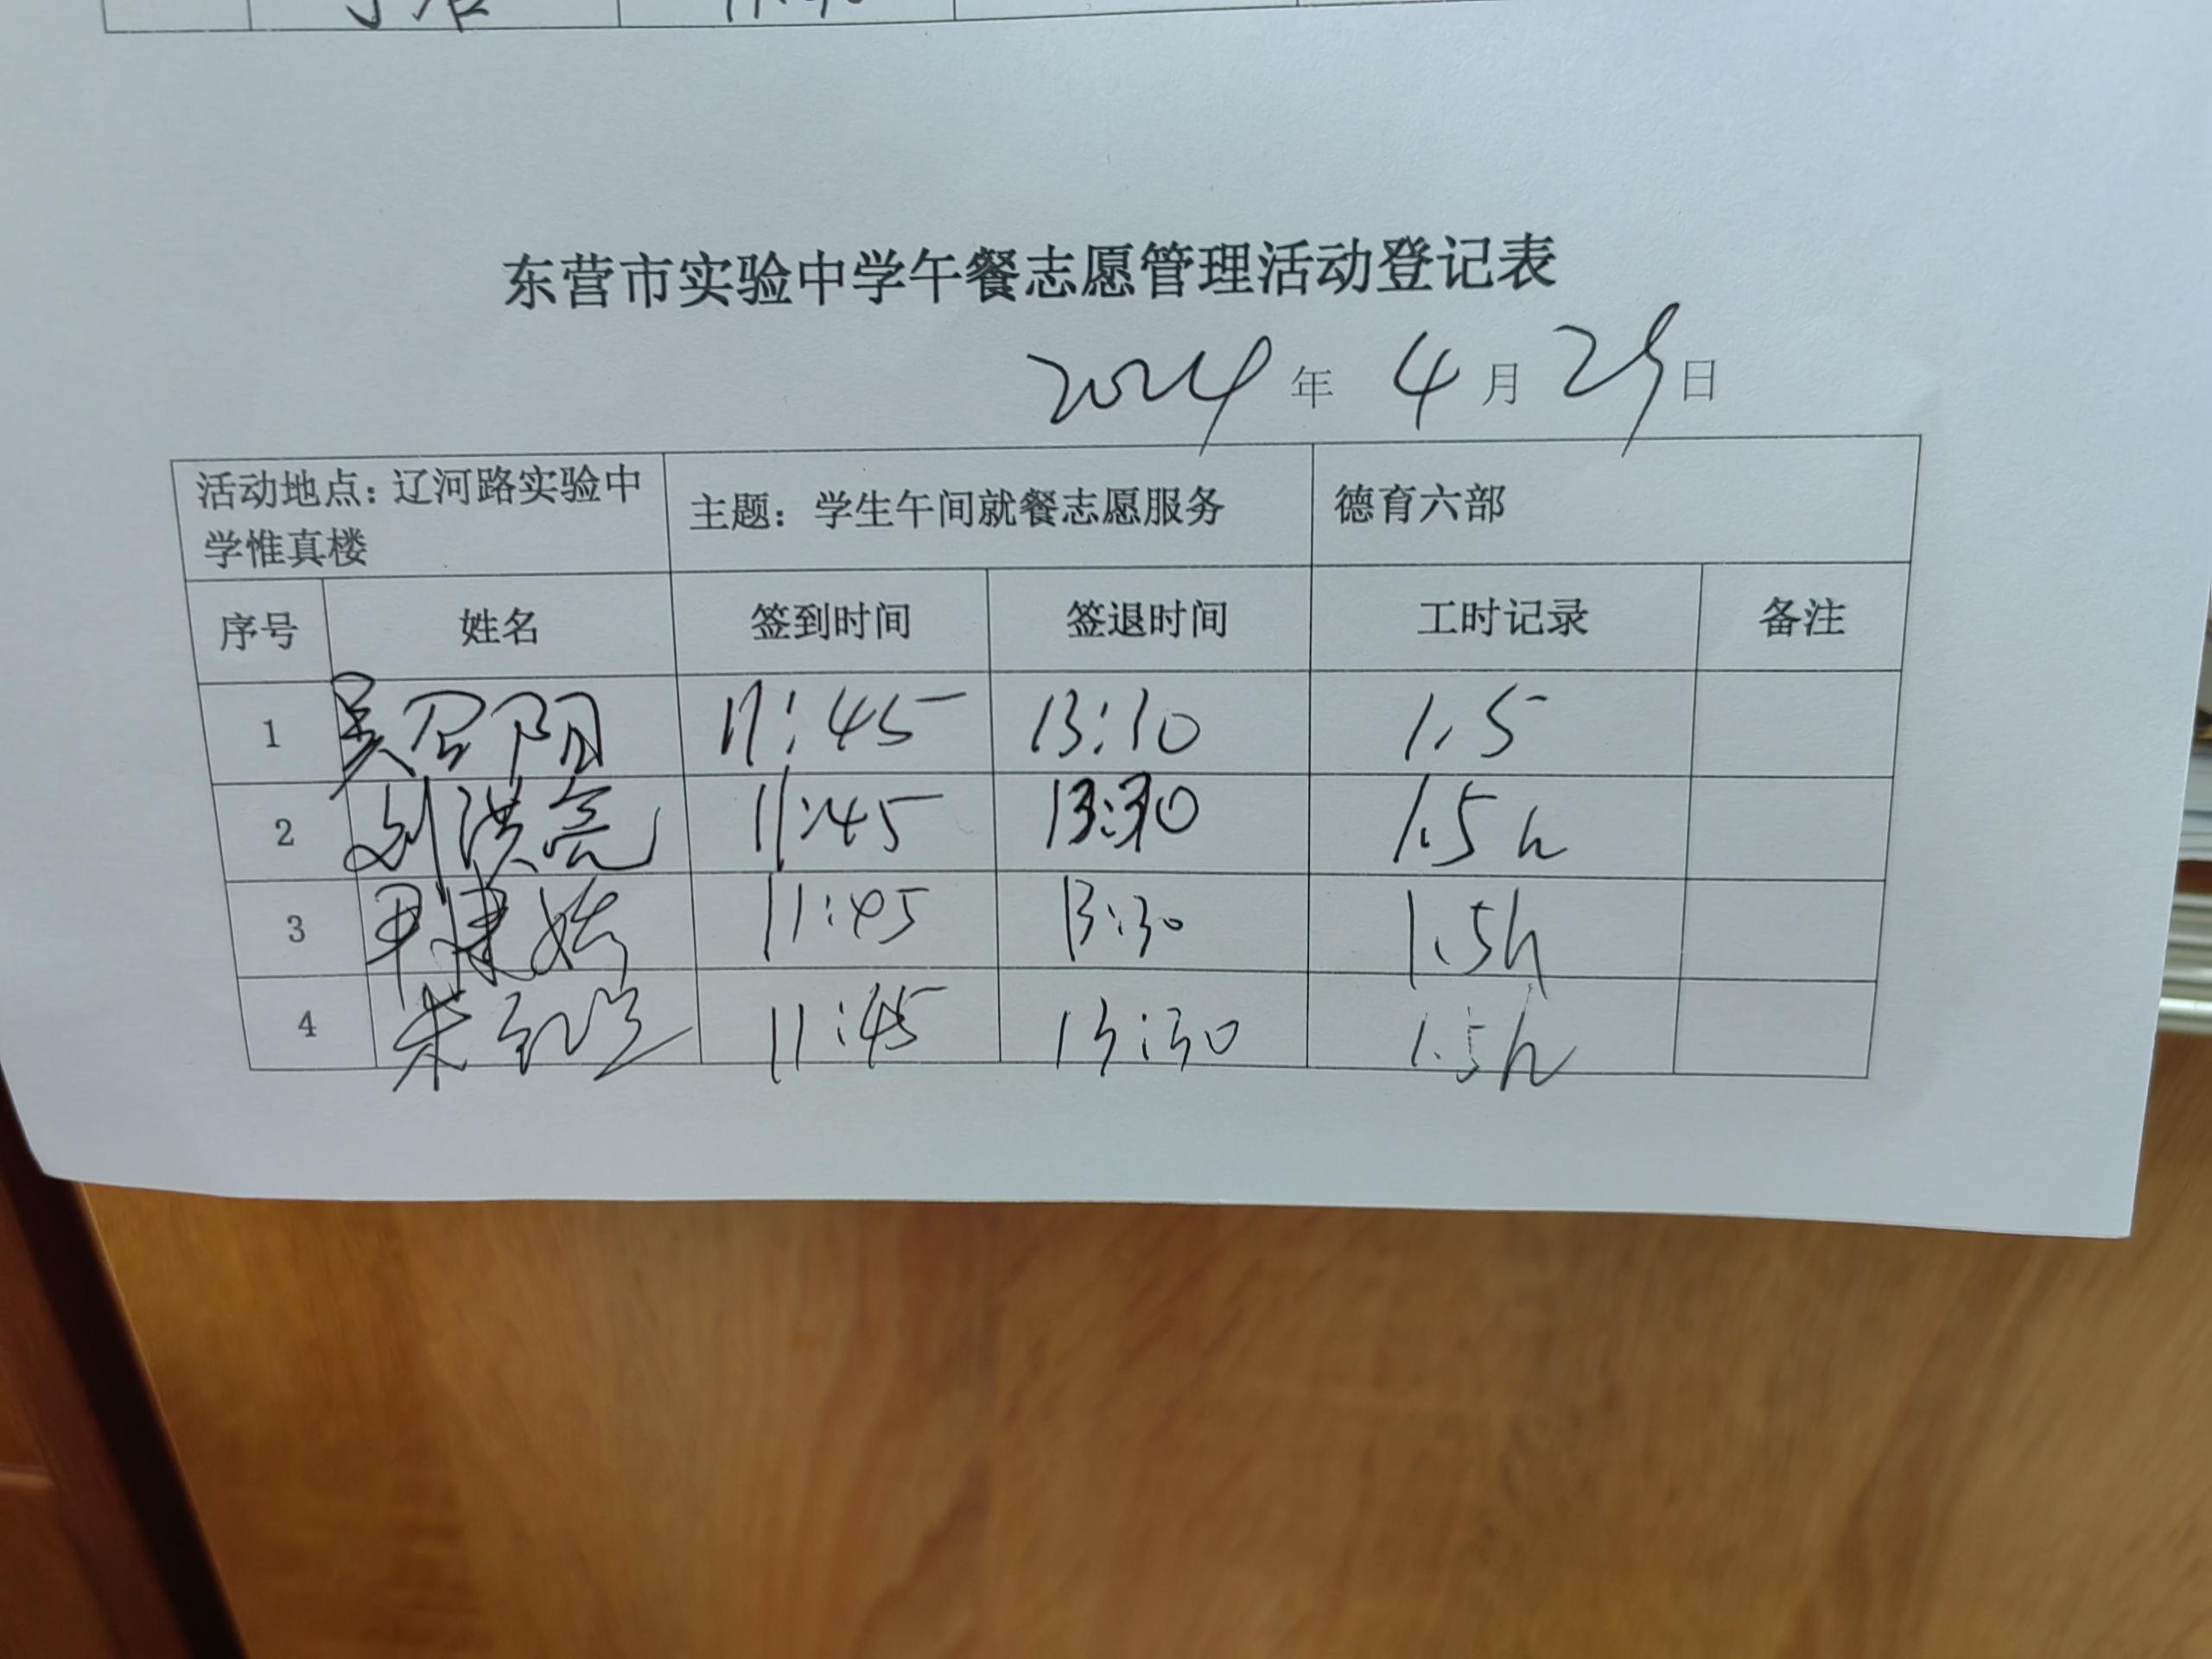 东营市实验中学午餐志愿管理活动登记表
2024年 4月29日
活动地点：辽河路实验中学惟真楼 主题：学生午间就餐志愿服务 德育六部
序号 姓名 签到时间 签退时间 工时记录 备注
1 吴召阳 11:45 13:30 1.5
2 刘洪亮 11:45 13:30 1.5h
3 11:45 13:30 1.5h
4 11:45 13:30 1.5h